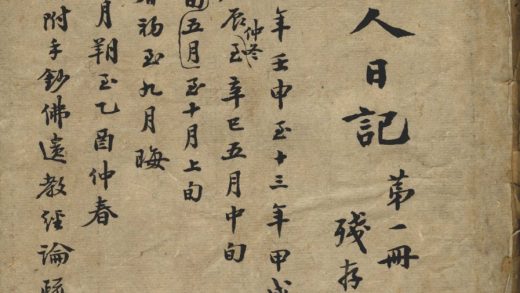 人日記 第一冊
殘存
年壬申至十三年甲戌
辰仲冬至辛巳五月中旬
五月至十月上旬
至九月晦
月朔至乙酉仲春
附手鈔佛遺教經論疏